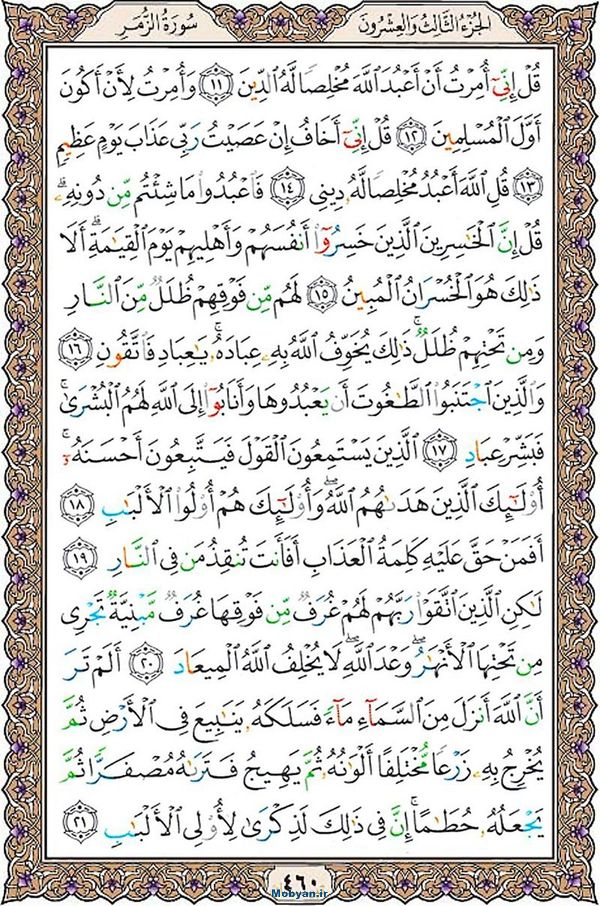 سُورَةُ الزُّمَرِ
الجُزْءُ الثَّالِثُ وَالعِشْرُونَ
قُلْ إِنِّيٓ أُمِرْتُ أَنْ أَعْبُدَ ٱللَّهَ مُخْلِصًا لَّهُ ٱلدِّينَ ١١ وَأُمِرْتُ لِأَنْ أَكُونَ
أَوَّلَ ٱلْمُسْلِمِينَ ١٢ قُلْ إِنِّيٓ أَخَافُ إِنْ عَصَيْتُ رَبِّي عَذَابَ يَوْمٍ عَظِيمٍ
١٣ قُلِ ٱللَّهَ أَعْبُدُ مُخْلِصًا لَّهُۥ دِينِي ١٤ فَٱعْبُدُوا۟ مَا شِئْتُم مِّن دُونِهِۦ ۗ
قُلْ إِنَّ ٱلْخَٰسِرِينَ ٱلَّذِينَ خَسِرُوٓا۟ أَنفُسَهُمْ وَأَهْلِيهِمْ يَوْمَ ٱلْقِيَٰمَةِ ۗ أَلَا
ذَٰلِكَ هُوَ ٱلْخُسْرَانُ ٱلْمُبِينُ ١٥ لَهُم مِّن فَوْقِهِمْ ظُلَلٌ مِّنَ ٱلنَّارِ
وَمِن تَحْتِهِمْ ظُلَلٌ ۚ ذَٰلِكَ يُخَوِّفُ ٱللَّهُ بِهِۦ عِبَادَهُۥ ۚ يَٰعِبَادِ فَٱتَّقُونِ ١٦
وَٱلَّذِينَ ٱجْتَنَبُوا۟ ٱلطَّٰغُوتَ أَن يَعْبُدُوهَا وَأَنَابُوٓا۟ إِلَى ٱللَّهِ لَهُمُ ٱلْبُشْرَىٰ ۚ
فَبَشِّرْ عِبَادِ ١٧ ٱلَّذِينَ يَسْتَمِعُونَ ٱلْقَوْلَ فَيَتَّبِعُونَ أَحْسَنَهُۥٓ ۚ
أُو۟لَٰٓئِكَ ٱلَّذِينَ هَدَىٰهُمُ ٱللَّهُ ۖ وَأُو۟لَٰٓئِكَ هُمْ أُو۟لُوا۟ ٱلْأَلْبَٰبِ ١٨
أَفَمَنْ حَقَّ عَلَيْهِ كَلِمَةُ ٱلْعَذَابِ أَفَأَنتَ تُنقِذُ مَن فِي ٱلنَّارِ ١٩
لَٰكِنِ ٱلَّذِينَ ٱتَّقَوْا۟ رَبَّهُمْ لَهُمْ غُرَفٌ مِّن فَوْقِهَا غُرَفٌ مَّبْنِيَّةٌ تَجْرِي
مِن تَحْتِهَا ٱلْأَنْهَٰرُ ۖ وَعْدَ ٱللَّهِ ۖ لَا يُخْلِفُ ٱللَّهُ ٱلْمِيعَادَ ٢٠ أَلَمْ تَرَ
أَنَّ ٱللَّهَ أَنزَلَ مِنَ ٱلسَّمَآءِ مَآءً فَسَلَكَهُۥ يَنَٰبِيعَ فِي ٱلْأَرْضِ ثُمَّ
يُخْرِجُ بِهِۦ زَرْعًا مُّخْتَلِفًا أَلْوَٰنُهُۥ ثُمَّ يَهِيجُ فَتَرَىٰهُ مُصْفَرًّا ثُمَّ
يَجْعَلُهُۥ حُطَٰمًا ۚ إِنَّ فِي ذَٰلِكَ لَذِكْرَىٰ لِأُو۟لِي ٱلْأَلْبَٰبِ ٢١
٤٦٠
Mobyan.ir